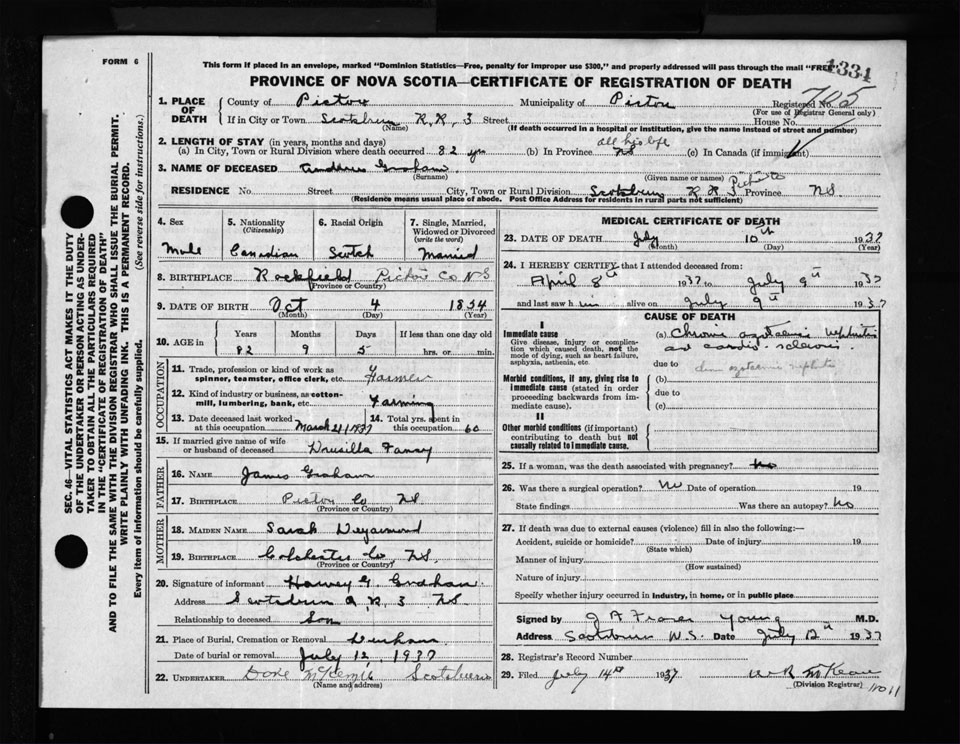 FORM 6
This form if placed in an envelope, marked "Dominion Statistics—Free, penalty for improper use $300," and properly addressed will pass through the mail "FREE"
1331
PROVINCE OF NOVA SCOTIA—CERTIFICATE OF REGISTRATION OF DEATH
705
1. PLACE OF DEATH
County of Pictou Municipality of Pictou Registered No.
(For use of Registrar General only)
If in City or Town Scotsburn R.R. 3 Street House No.
(Name) (If death occurred in a hospital or institution, give the name instead of street and number)
2. LENGTH OF STAY (in years, months and days) all his life
(a) In City, Town or Rural Division where death occurred 82 yrs (b) In Province NS (c) In Canada (if immigrant)
3. NAME OF DECEASED Graham
(Surname) (Given name or names)
RESIDENCE No. Street City, Town or Rural Division Scotsburn R R 3 Province N.S.
(Residence means usual place of abode. Post Office Address for residents in rural parts not sufficient)
4. Sex Male
5. Nationality (Citizenship) Canadian
6. Racial Origin Scotch
7. Single, Married, Widowed or Divorced (write the word) Married
8. BIRTHPLACE Rockfield Pictou Co N S
(Province or Country)
9. DATE OF BIRTH Oct 4 1854
(Month) (Day) (Year)
10. AGE in Years Months Days If less than one day old
82 9 5 hrs. or min.
OCCUPATION
11. Trade, profession or kind of work as spinner, teamster, office clerk, etc. Farmer
12. Kind of industry or business, as cotton-mill, lumbering, bank, etc. Farming
13. Date deceased last worked at this occupation March 21/1937
14. Total yrs. spent in this occupation 60
15. If married give name of wife or husband of deceased Drusilla Fanny
FATHER
16. NAME James Graham
17. BIRTHPLACE Pictou Co NS
(Province or Country)
MOTHER
18. MAIDEN NAME Sarah
19. BIRTHPLACE Colchester Co NS.
(Province or Country)
20. Signature of informant Harvey G Graham
Address Scotsburn R. R. 3 NS
Relationship to deceased Son
21. Place of Burial, Cremation or Removal Durham
Date of burial or removal July 12, 1937
22. UNDERTAKER Scotsburn
(Name and address)
MEDICAL CERTIFICATE OF DEATH
23. DATE OF DEATH July 10th 1937
(Month) (Day) (Year)
24. I HEREBY CERTIFY that I attended deceased from:
April 8th 1937 to July 9th 1937
and last saw him alive on July 9th 1937
CAUSE OF DEATH
I
Immediate cause
Give disease, injury or complication which caused death, not the mode of dying, such as heart failure, asphyxia, asthenia, etc.
(a) Chronic azotaemic Nephritis
and cardio-sclerosis.
due to
Morbid conditions, if any, giving rise to immediate cause (stated in order proceeding backwards from immediate cause).
(b)
due to
(c)
II
Other morbid conditions (if important) contributing to death but not causally related to immediate cause.
25. If a woman, was the death associated with pregnancy? no
26. Was there a surgical operation? No Date of operation 19
State findings Was there an autopsy? No
27. If death was due to external causes (violence) fill in also the following:—
Accident, suicide or homicide? Date of injury 19
(State which)
Manner of injury
(How sustained)
Nature of injury
Specify whether injury occurred in industry, in home, or in public place
Signed by J A Fraser Young M.D.
Address Scotsburn N.S. Date July 12th 1937
28. Registrar's Record Number
29. Filed July 14th 1937
(Division Registrar)
11011
SEC. 46—VITAL STATISTICS ACT MAKES IT THE DUTY
OF THE UNDERTAKER OR PERSON ACTING AS UNDERTAKER
TO OBTAIN ALL THE PARTICULARS REQUIRED
IN THE "CERTIFICATE OF REGISTRATION OF DEATH"
AND TO FILE THE SAME WITH THE DIVISION REGISTRAR WHO SHALL ISSUE THE BURIAL PERMIT.
WRITE PLAINLY WITH UNFADING INK. THIS IS A PERMANENT RECORD.
Every item of information should be carefully supplied. (See reverse side for instructions.)